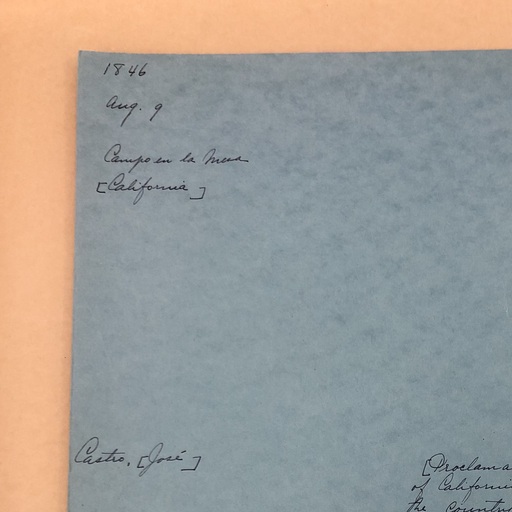 1846
Aug. 9
Campo en la Mesa
[California]
Castro, [José]
[Proclama
of Californi
the countr